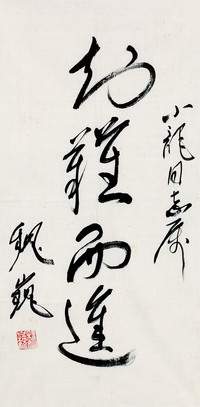 小龍同志属
知難而進
魏巍